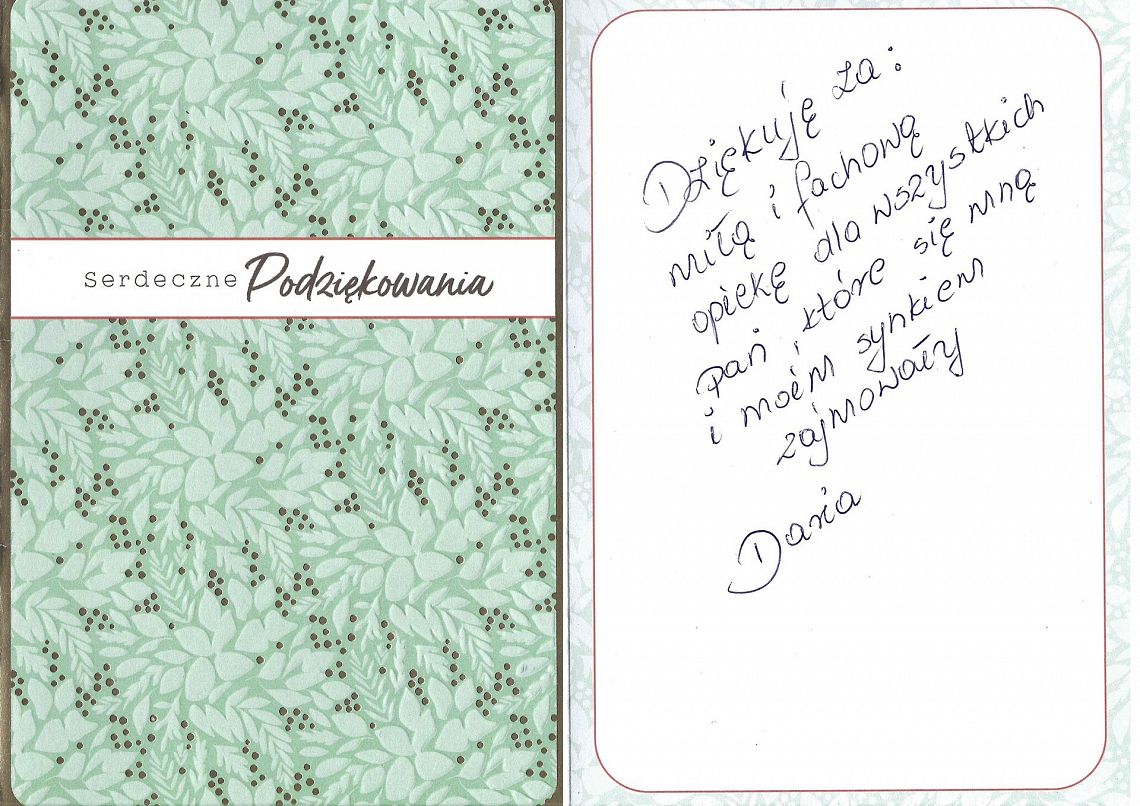 Serdeczne Podziękowania
Dziękuję za:
miłą i fachową
opiekę dla wszystkich
pań, które się mną
i moim synkiem
zajmowały
Daria